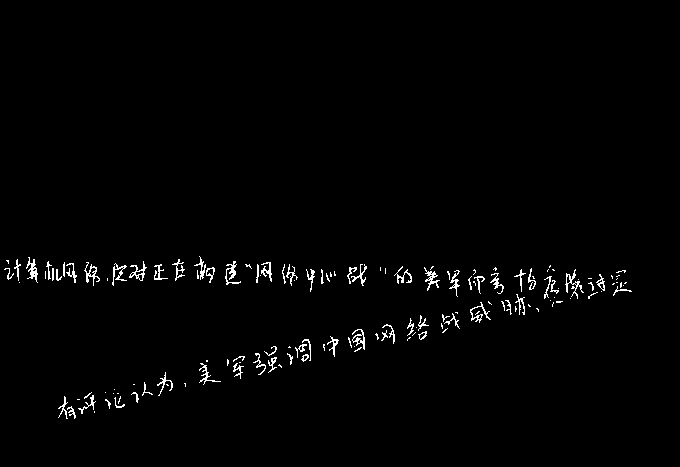 计算机网络,应对正在构建“网络中心战”的美军而言
有评论认为,美军强调中国网络战威胁,